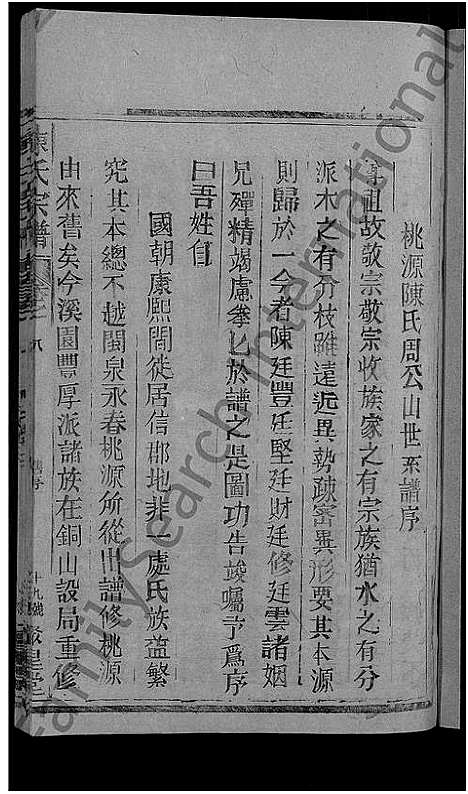 桃源陳氏周公山世系譜序
尊祖故敬宗敬宗收族家之有宗族猶水之有分
派木之有分枝雖遠近異勢疎密異形要其本源
則歸於一今者陳廷豐廷堅廷財廷修廷雲諸姻
兄殫精竭慮拳匕於譜之是圖功告竣囑予為序
曰吾姓自
國朝康熙間徙居信郡地非一處氏族益繁
究其本總不越閩泉永春桃源所從出譜修桃源
由來舊矣今溪園豐厚派諸族在銅山設局重修
陳氏宗譜
FamilySearch International